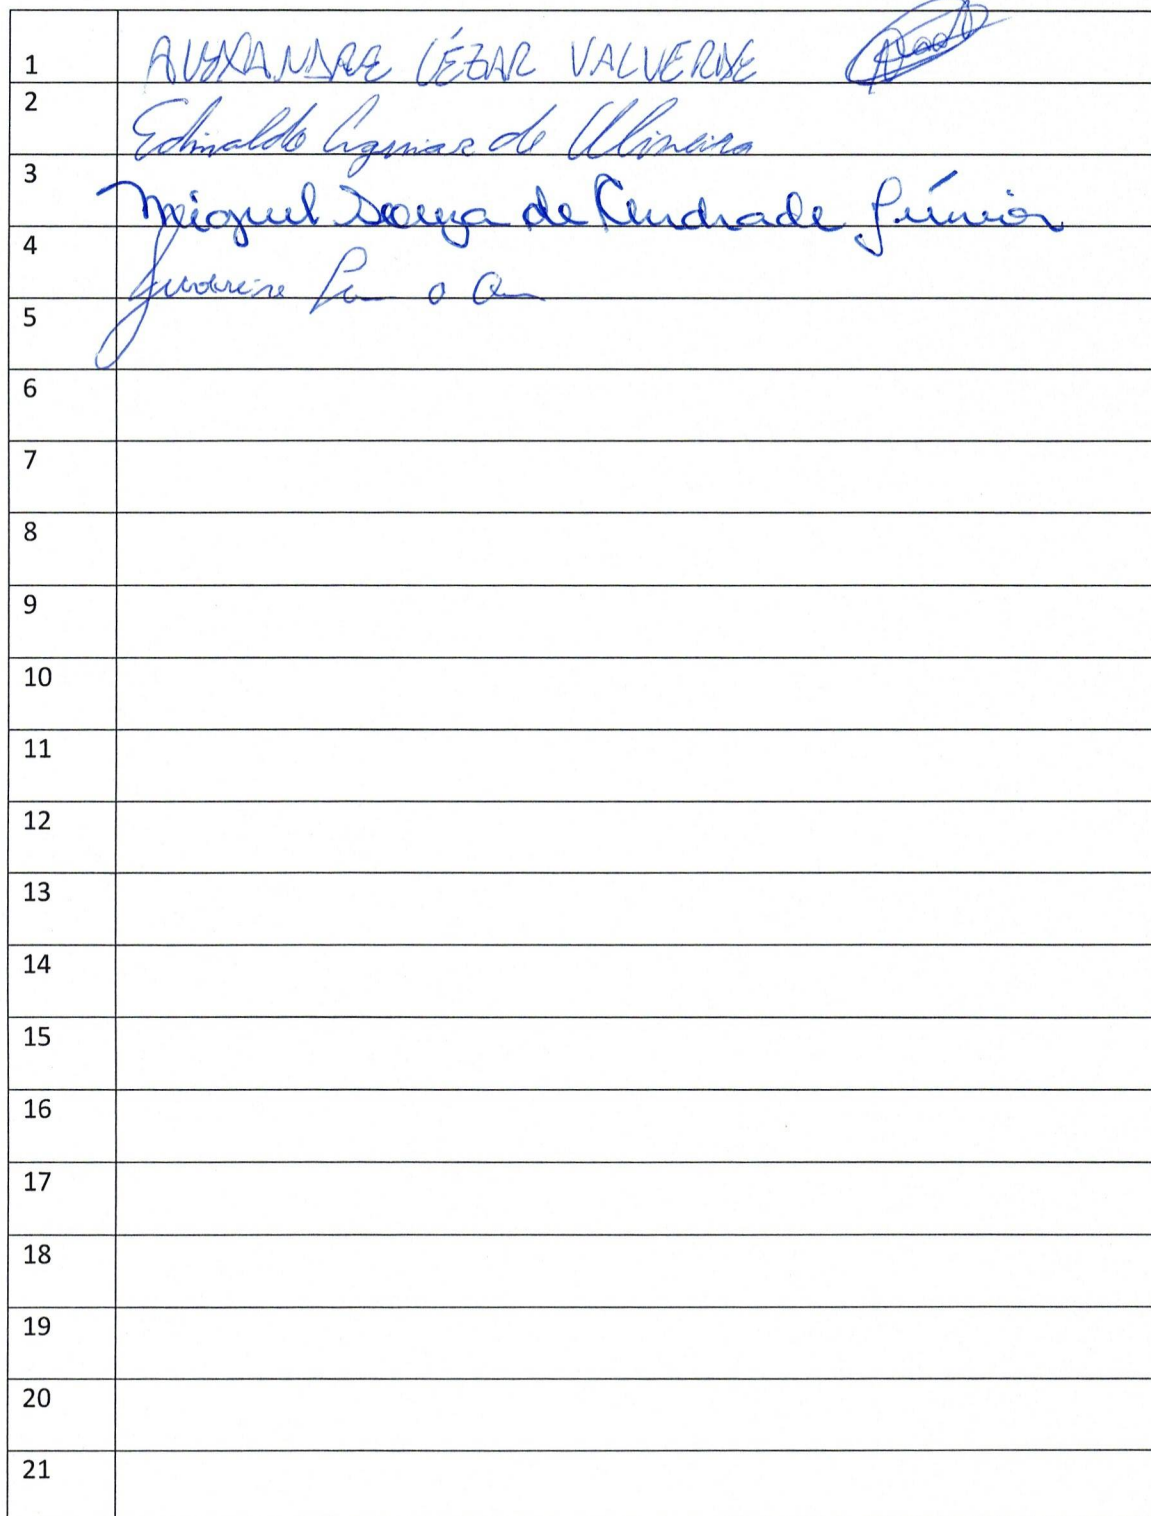 1 ALEXANDRE CÉZAR VALVERDE
2 Edinaldo Aguiar de Oliveira
3 Miguel Souza de Andrade Júnior
4
5
6
7
8
9
10
11
12
13
14
15
16
17
18
19
20
21